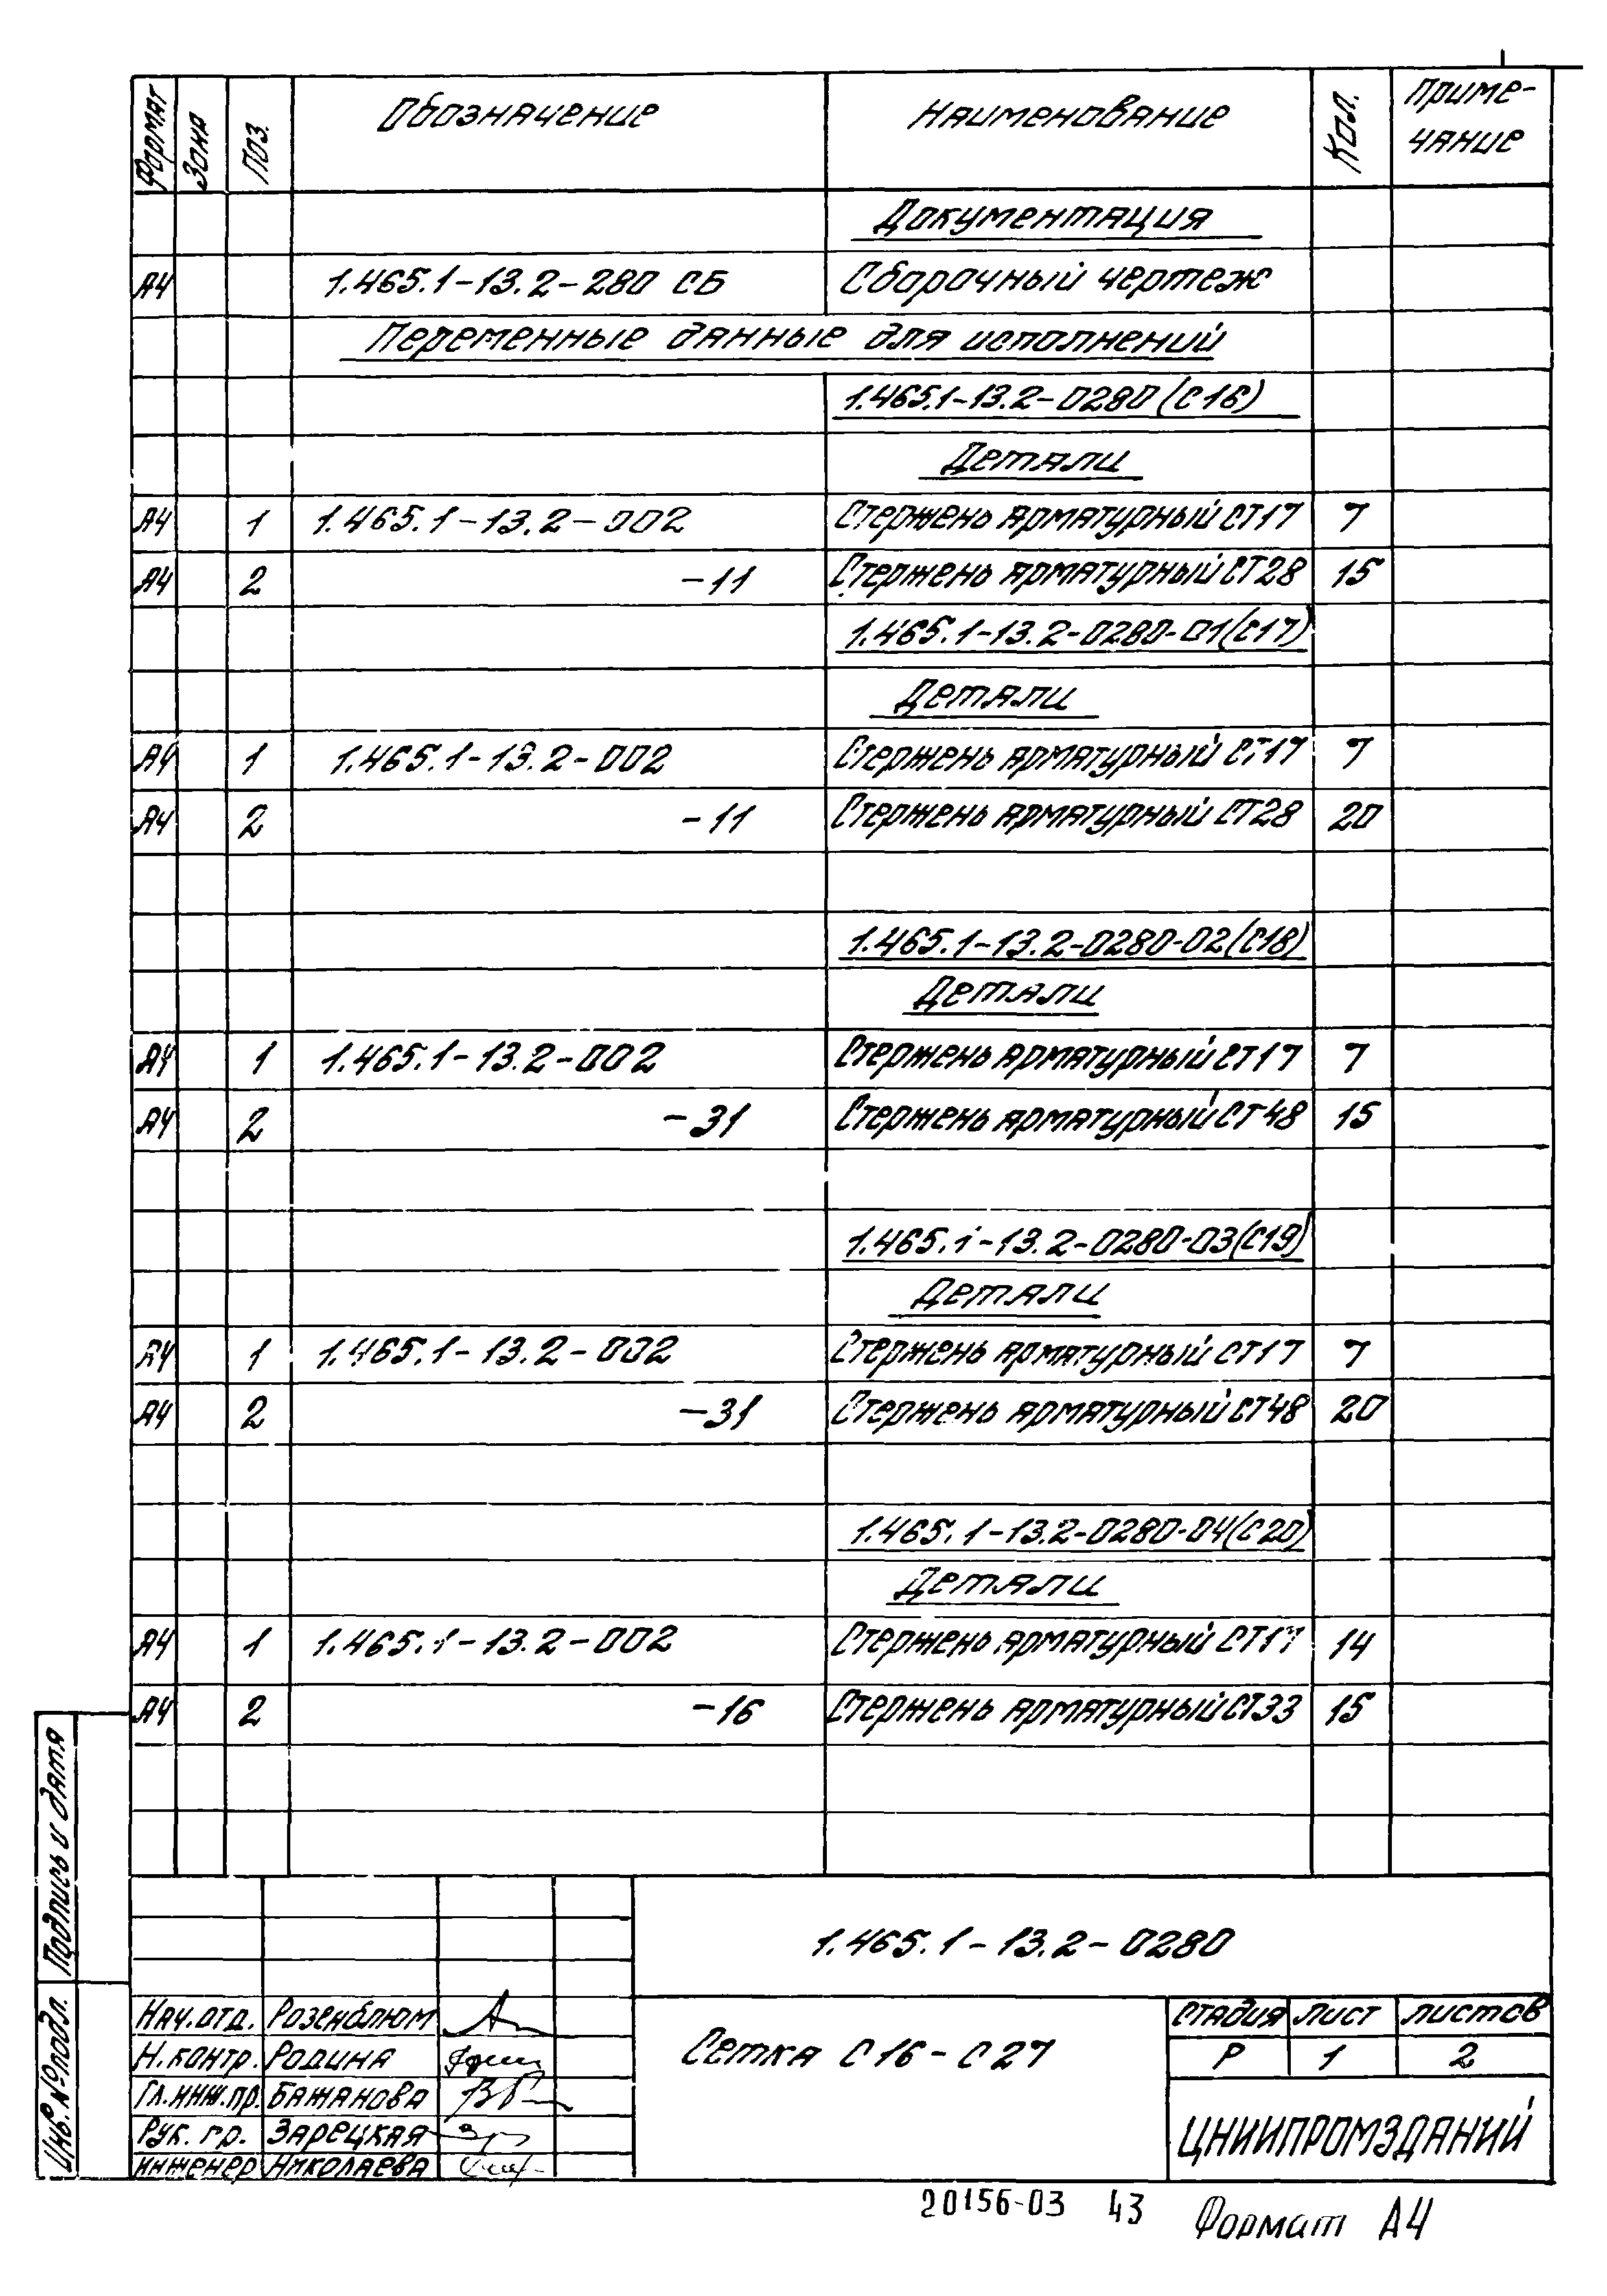 Формат Зона Поз. Обозначение Наименование Кол. Приме-
чание
Документация
А4 1.465.1-13.2-280 СБ Сборочный чертеж
Переменные данные для исполнений
1.465.1-13.2-0280 (С16)
Детали
А4 1 1.465.1-13.2-002 Стержень арматурный СТ17 7
А4 2 -11 Стержень арматурный СТ28 15
1.465.1-13.2-0280-01(С17)
Детали
А4 1 1.465.1-13.2-002 Стержень арматурный СТ17 7
А4 2 -11 Стержень арматурный СТ28 20
1.465.1-13.2-0280-02(С18)
Детали
А4 1 1.465.1-13.2-002 Стержень арматурный СТ17 7
А4 2 -31 Стержень арматурный СТ48 15
1.465.1-13.2-0280-03(С19)
Детали
А4 1 1.465.1-13.2-002 Стержень арматурный СТ17 7
А4 2 -31 Стержень арматурный СТ48 20
1.465.1-13.2-0280-04(С20)
Детали
А4 1 1.465.1-13.2-002 Стержень арматурный СТ17 14
А4 2 -16 Стержень арматурный СТ33 15
Подпись и дата
Инв. № подл.
1.465.1-13.2-0280
Нач.отд. Розенблюм
Н.контр. Родина
Гл.инж.пр. Бажанова
Рук. гр. Зарецкая
Инженер Николаева
Сетка С16-С27
Стадия Лист Листов
Р 1 2
ЦНИИПРОМЗДАНИЙ
20156-03 43
Формат А4